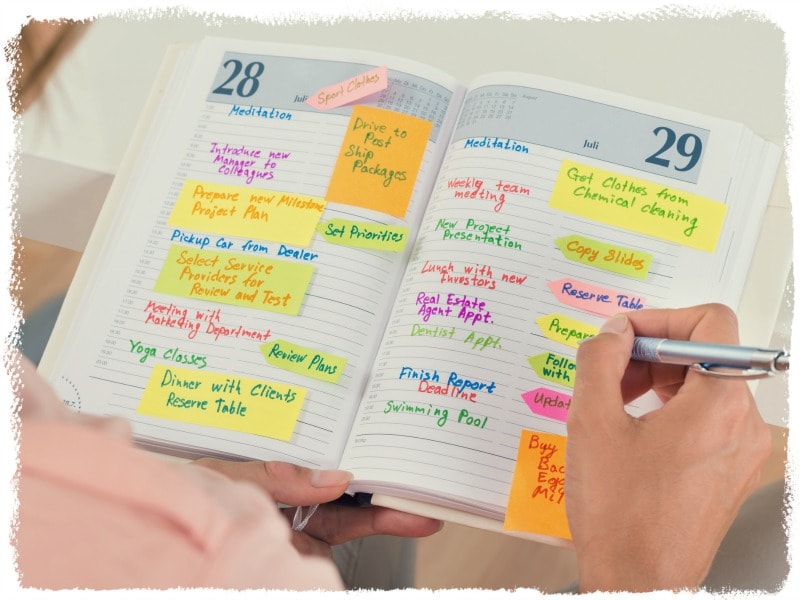 28
Juli
Sport Clothes
Meditation
Drive to
Post
Ship
Packages
Introduce new
Manager to
Colleagues
Prepare new Milestone
Project Plan
Set Priorities
Pickup Car from Dealer
Select Service
Providers for
Review and Test
Meeting with
Marketing Department
Yoga Classes
Review Plans
Dinner with Clients
Reserve Table
29
Juli
Meditation
Get Clothes from
Chemical cleaning
Weekly team
meeting
New Project
Presentation
Copy Slides
Lunch with new
Investors
Reserve Table
Real Estate
Agent Appt.
Prepare
Dentist Appt.
Follow
with
Finish Report
Deadline
Updat
Swimming Pool
Buy
Bac
Egg
Mil